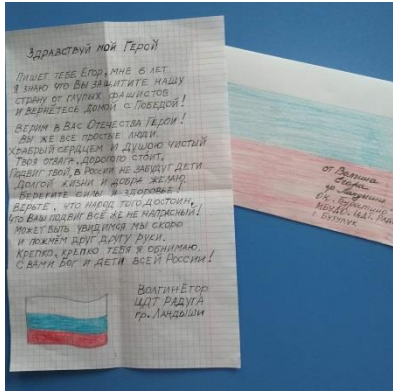 Здравствуй мой Герой
Пишет тебе Егор, мне 6 лет
Я знаю что Вы защитите нашу
страну от глупых фашистов
и вернётесь домой с Победой!
Верим в Вас Отечества Герои!
Вы же все простые люди.
Храбрый сердцем и душою чистый
Твоя отвага, дорогого стоит,
Подвиг твой, в России не забудут дети
Долгой жизни и добра желаю,
Берегите силы и здоровье!
Верьте, что народ того достоин,
что Ваш подвиг всё же не напрасный!
Может быть увидимся мы скоро
и пожмём друг другу руки.
Крепко, крепко тебя я обнимаю,
С вами Бог и дети всей России!
Волгин Егор
ЦДТ Радуга
гр. Ландыши
от Волгина
Егора
гр. Ландыши
г. Бузулук